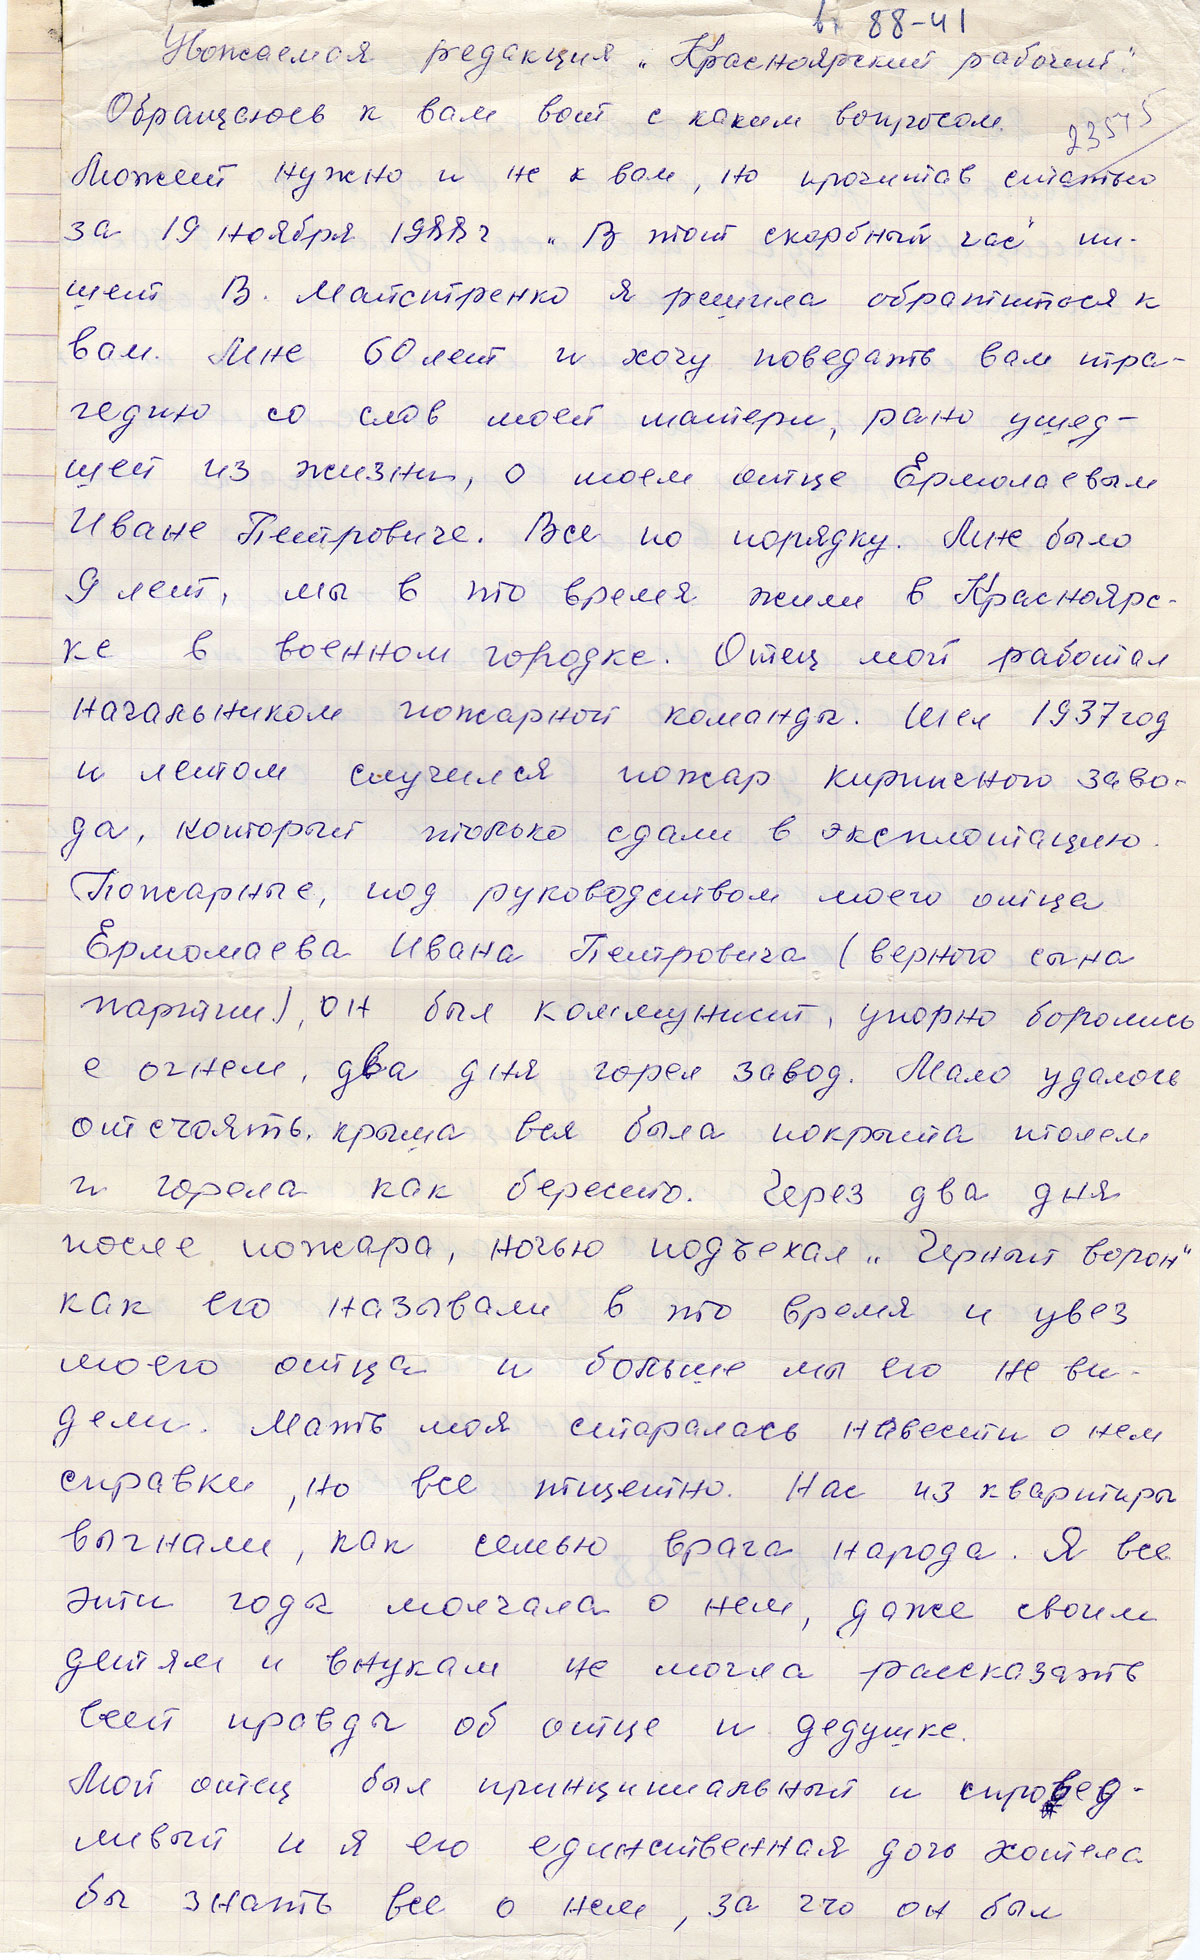 вх 88-41
Уважаемая редакция „Красноярский рабочий".
Обращаюсь к вам вот с каким вопросом.
23575
Может нужно и не к вам, но прочитав статью
за 19 ноября 1988г „В этот скорбный час" пи-
шет В. Майстренко я решила обратиться к
вам. Мне 60 лет и хочу поведать вам тра-
гедию со слов моей матери, рано ушед-
шей из жизни, о моем отце Ермолаевым
Иване Петровиче. Все по порядку. Мне было
9 лет, мы в это время жили в Красноярс-
ке в военном городке. Отец мой работал
начальником пожарной команды. Шел 1937 год
и летом случился пожар кирписного заво-
да, который только сдали в эксплотацию.
Пожарные, под руководством моего отца
Ермомаева Ивана Петровича (верного сына
партии), он был коммунист, упорно боролись
с огнем, два дня горел завод. Мало удалось
отстоять, крыша вся была покрыта толем
и горела как бересто. Через два дня
после пожара, ночью подъехал „Черный ворон"
как его называли в это время и увез
моего отца и больше мы его не ви-
дели. Мать моя старалась навести о нем
справки, но все тщетно. Нас из квартиры
выгнали, как семью врага народа. Я все
эти годы молчала о нем, даже своим
детям и внукам не могла рассказать
всей правды об отце и дедушке.
Мой отец был принципиальный и справед-
ливый и я его единственная дочь хотела
бы знать все о нем, за что он был